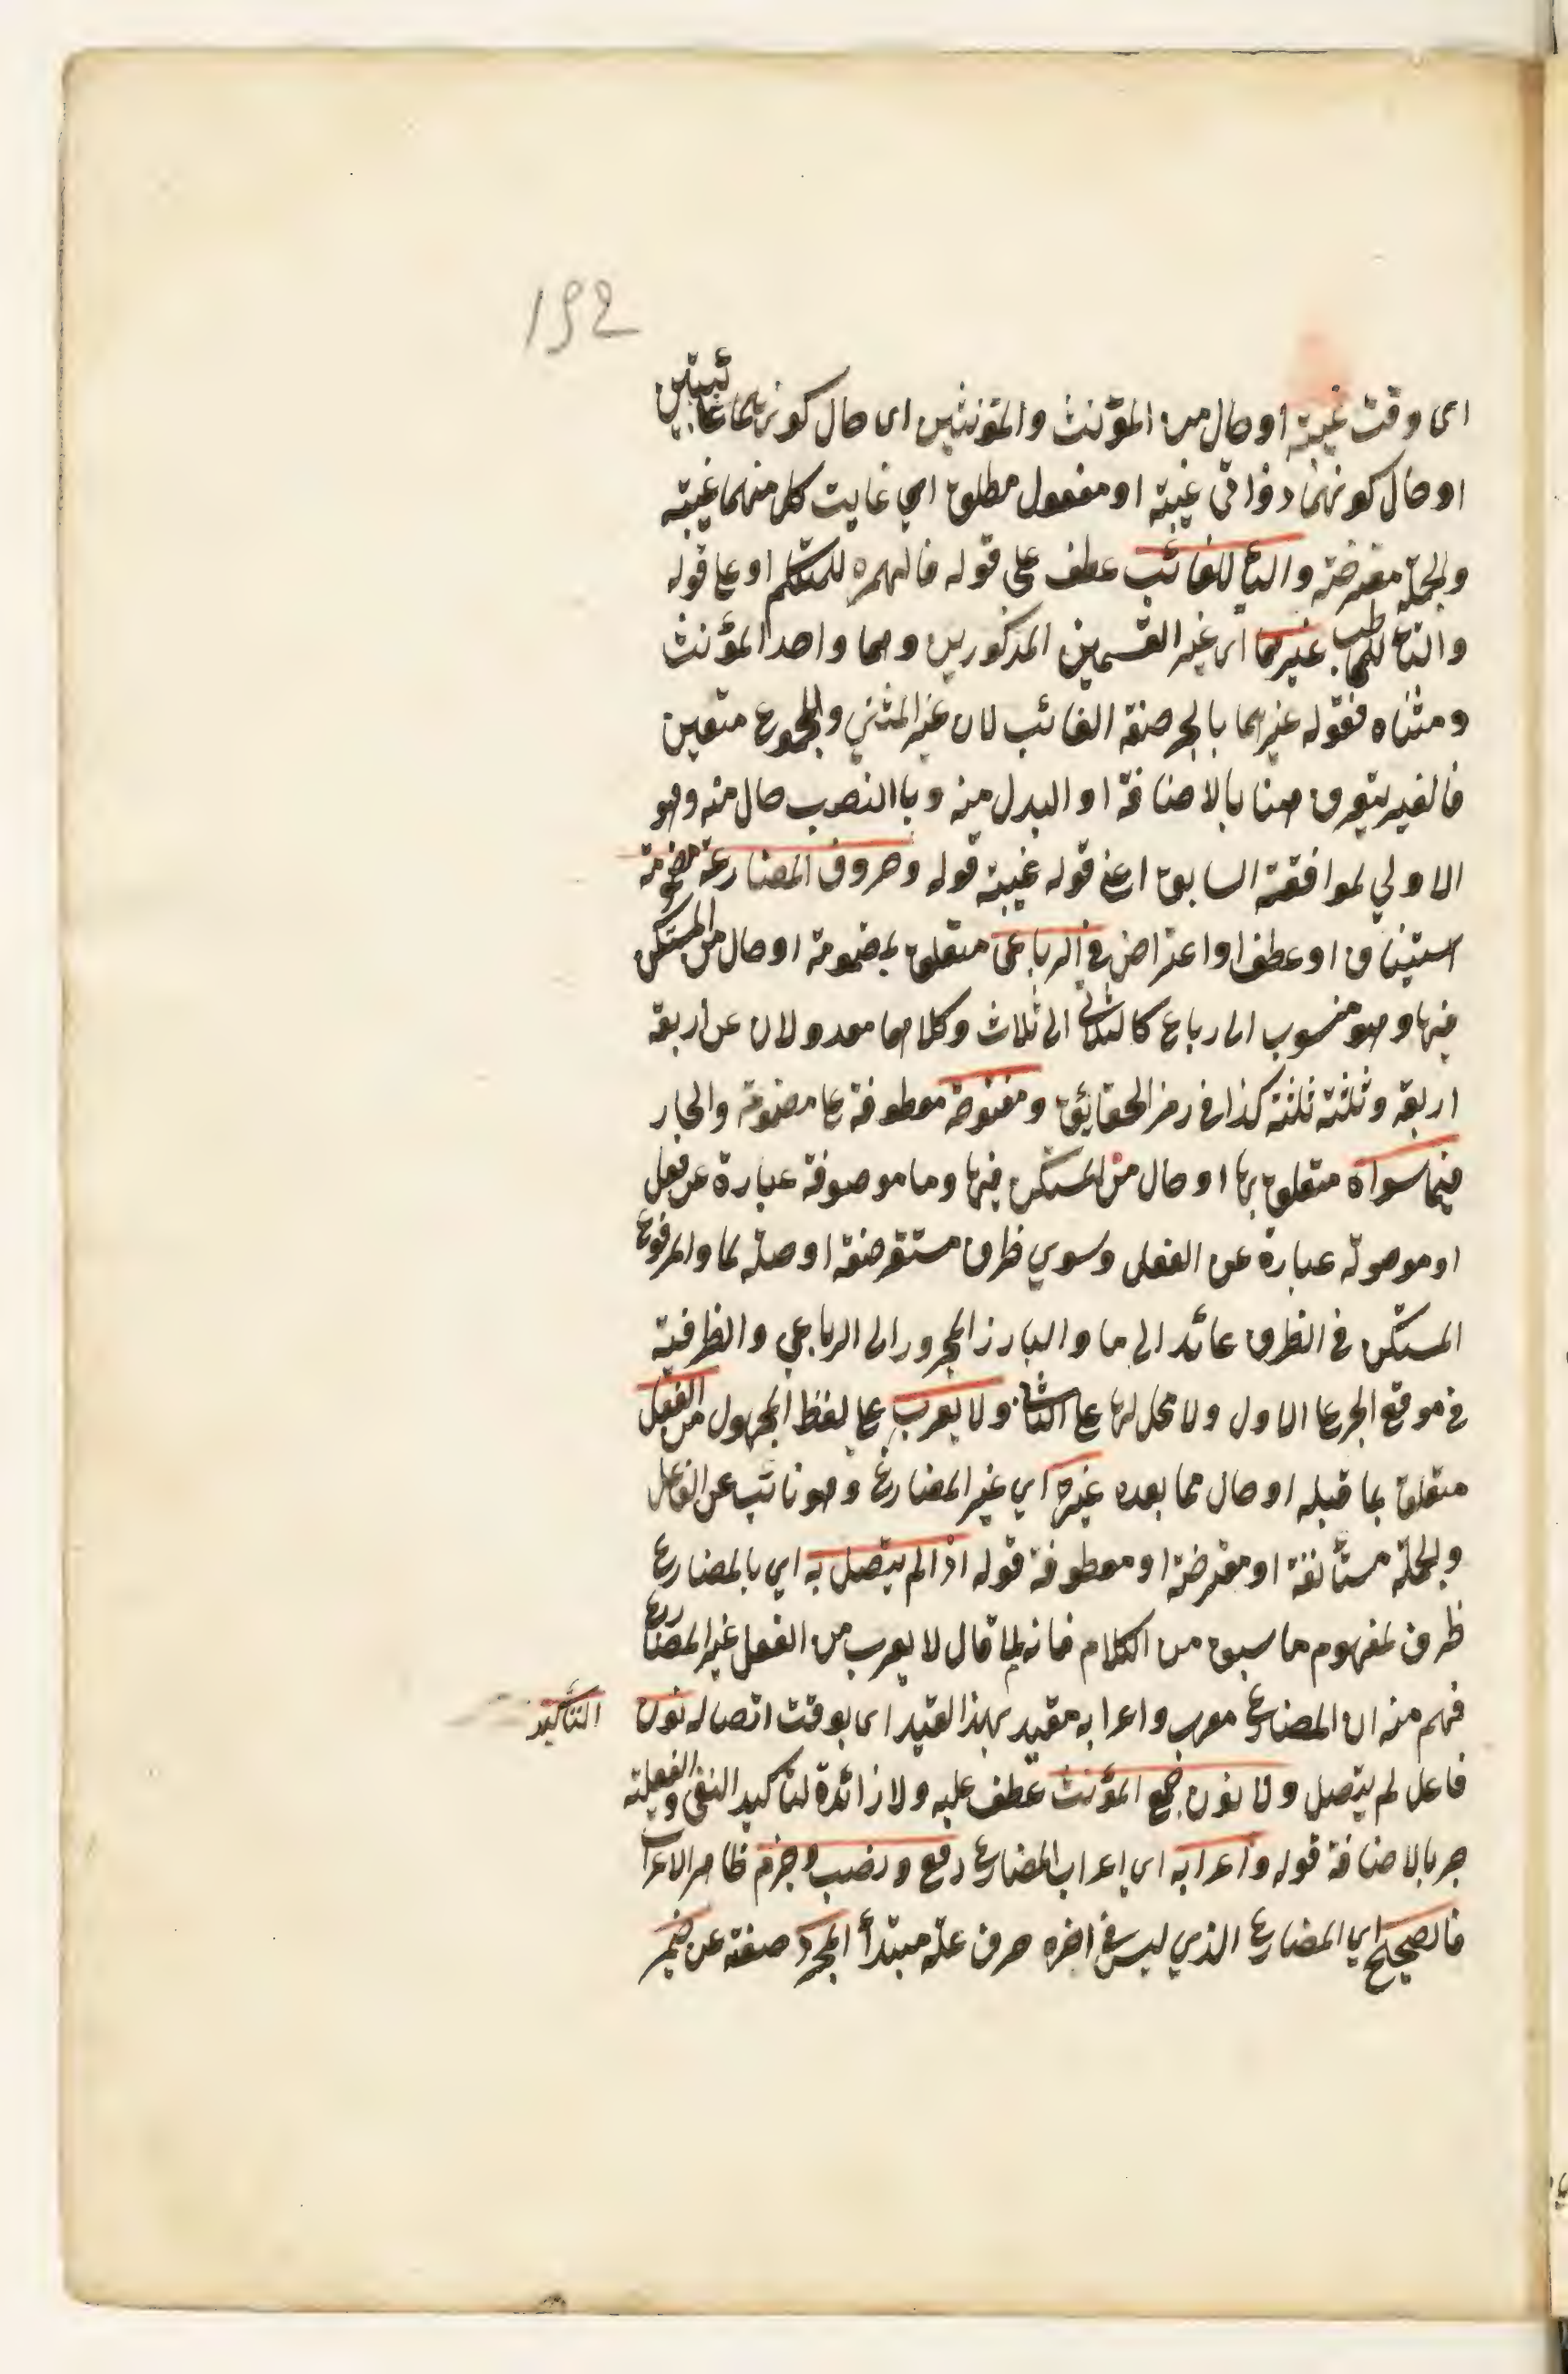 192
اى وقت غيبة او حال من المؤنث والمؤنثين اى حال كونهما غائبتين
او حال كونهما ذواتى غيبة او مفعول مطلق اي غابت كل منهما غيبة
والجملة معترضة والياء للغائب عطف على قوله فالهمزه للمتكلم او على قوله
والتاء للمخاطب غيرهما اى غير القسمين المذكورين وهما واحد المؤنث
ومثناه فقوله غيرهما بالجر صفة الغائب لان غير المثني والمجموع متعين
فالغير يتعرف هنا بالاضافة او البدل منه وباالنصب حال منه وهو
الاولي لموافقته السابق اعنى قوله غيبة قوله وحروف المضارعة مضمومة
استيناف او عطف او اعتراض في الرباعى متعلق بمضمومة او حال من المستكن
فيها وهو منسوب الى رباع كالثلاثى الى ثلاث وكلاهما معدولان عن اربعة
اربعة وثلثة ثلثة كذا فى رمز الحقايق ومفتوحة معطوفة على مضمومة والجار
فيما سواه متعلق بها او حال من المستكن فيها وما موصوفة عبارة عن فعل
او موصولة عبارة عن الفعل وسوي ظرف مستقر صفة او صلة لما والمرفوع
المستكن فى الظرف عائد الى ما والبارز المجرور الى الرباعي والظرفية
فى موقع الجر على الاول ولا محل لها على الثانى ولا يعرب على لفظ المجهول من الفعل
متعلق بما قبله او حال مما بعده غيره اي غير المضارع وهو نائب عن الفاعل
والجملة مستأنفة او معترضة او معطوفة قوله اذا لم يتصل به اي بالمضارع
ظرف لمفهوم ما سبق من الكلام فانه لما قال لا يعرب من الفعل غير المضارع
فهم منه ان المضارع معرب واعرابه مقيد بهذا القيد اى بوقت اتصاله نون التأكيد
فاعل لم يتصل ولا نون جمع المؤنث عطف عليه ولا زائدة لتأكيد النفى والفعلية
جر بالاضافة قوله واعرابه اى اعراب المضارع رفع ونصب وجزم ظاهر الاعراب
فالصحيح اي المضارع الذي ليس فى اخره حرف علة مبتدأ المجرد صفته عن ضمير